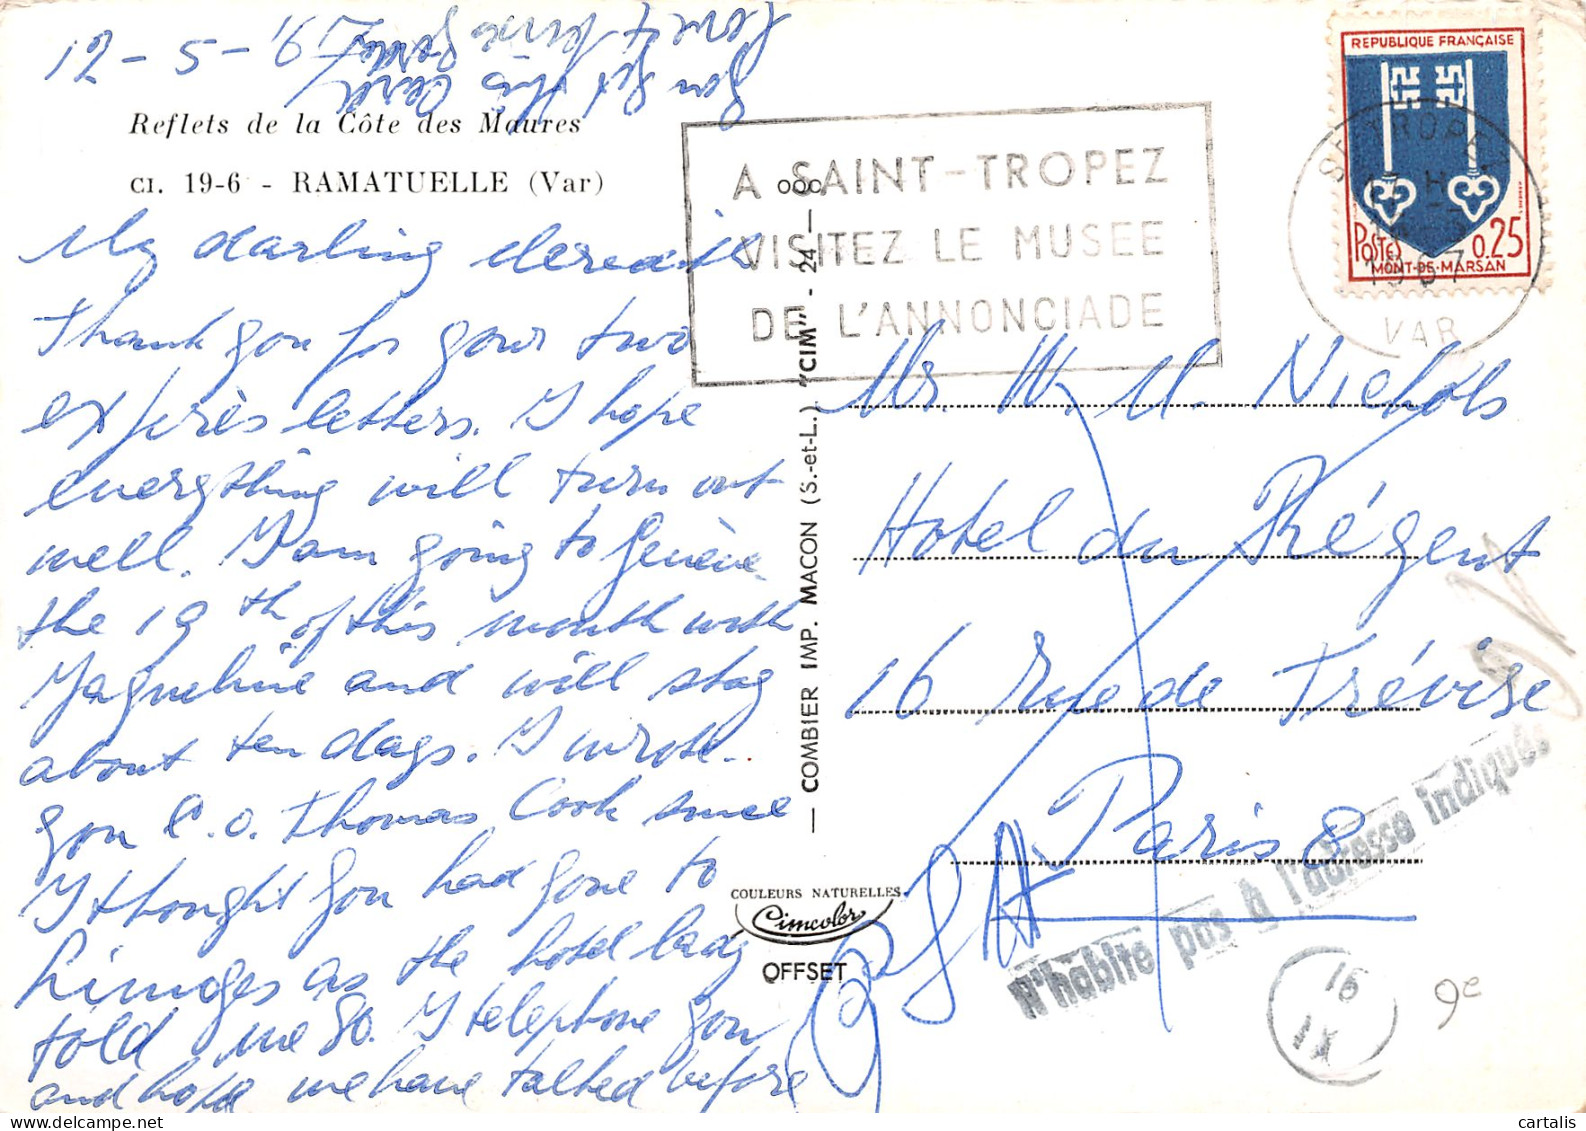 12-5-67
you get this card
Love
Reflets de la Côte des Maures
CI. 19-6 - RAMATUELLE (Var)
My darling
Thank you for your two
exprès letters. I hope
everything will turn out
well. I am going to Genève
the 19th of this month with
Jaqueline and will stay
about ten days. I wrote
you c.o. Thomas Cook since
I thought you had gone to
Limoges as the hotel lady
told me so. I telephone you
and hope we have talked before
A SAINT-TROPEZ
VISITEZ LE MUSEE
DE L'ANNONCIADE
REPUBLIQUE FRANÇAISE
POSTES 0.25
MONT-DE-MARSAN
ST TROPEZ
1967
VAR
COMBIER IMP. MACON (S.-et-L.) "CIM" - 24 -
COULEURS NATURELLES
Cimcolor
OFFSET
Mr. W. M. Nichols
Hotel du Régent
16 rue de Trévise
Paris
N'habite pas à l'adresse indiquée
16
IX
9e
cartalis